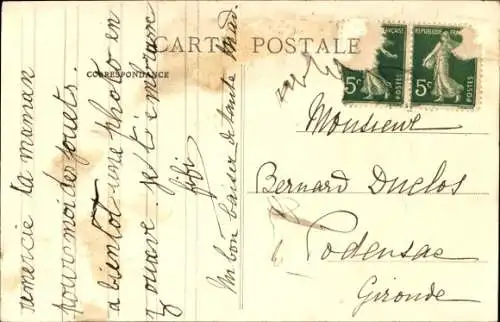 CARTE POSTALE
CORRESPONDANCE
remercie la maman
pour moi des jouets.
a bientôt une photo en
zouave. je t'embrasse
fifi
Un bon baiser de tante
RÉPUBLIQUE FRANÇAISE
5c
POSTES
5c
POSTES
Monsieur
Bernard Duclos
Podensac
Gironde